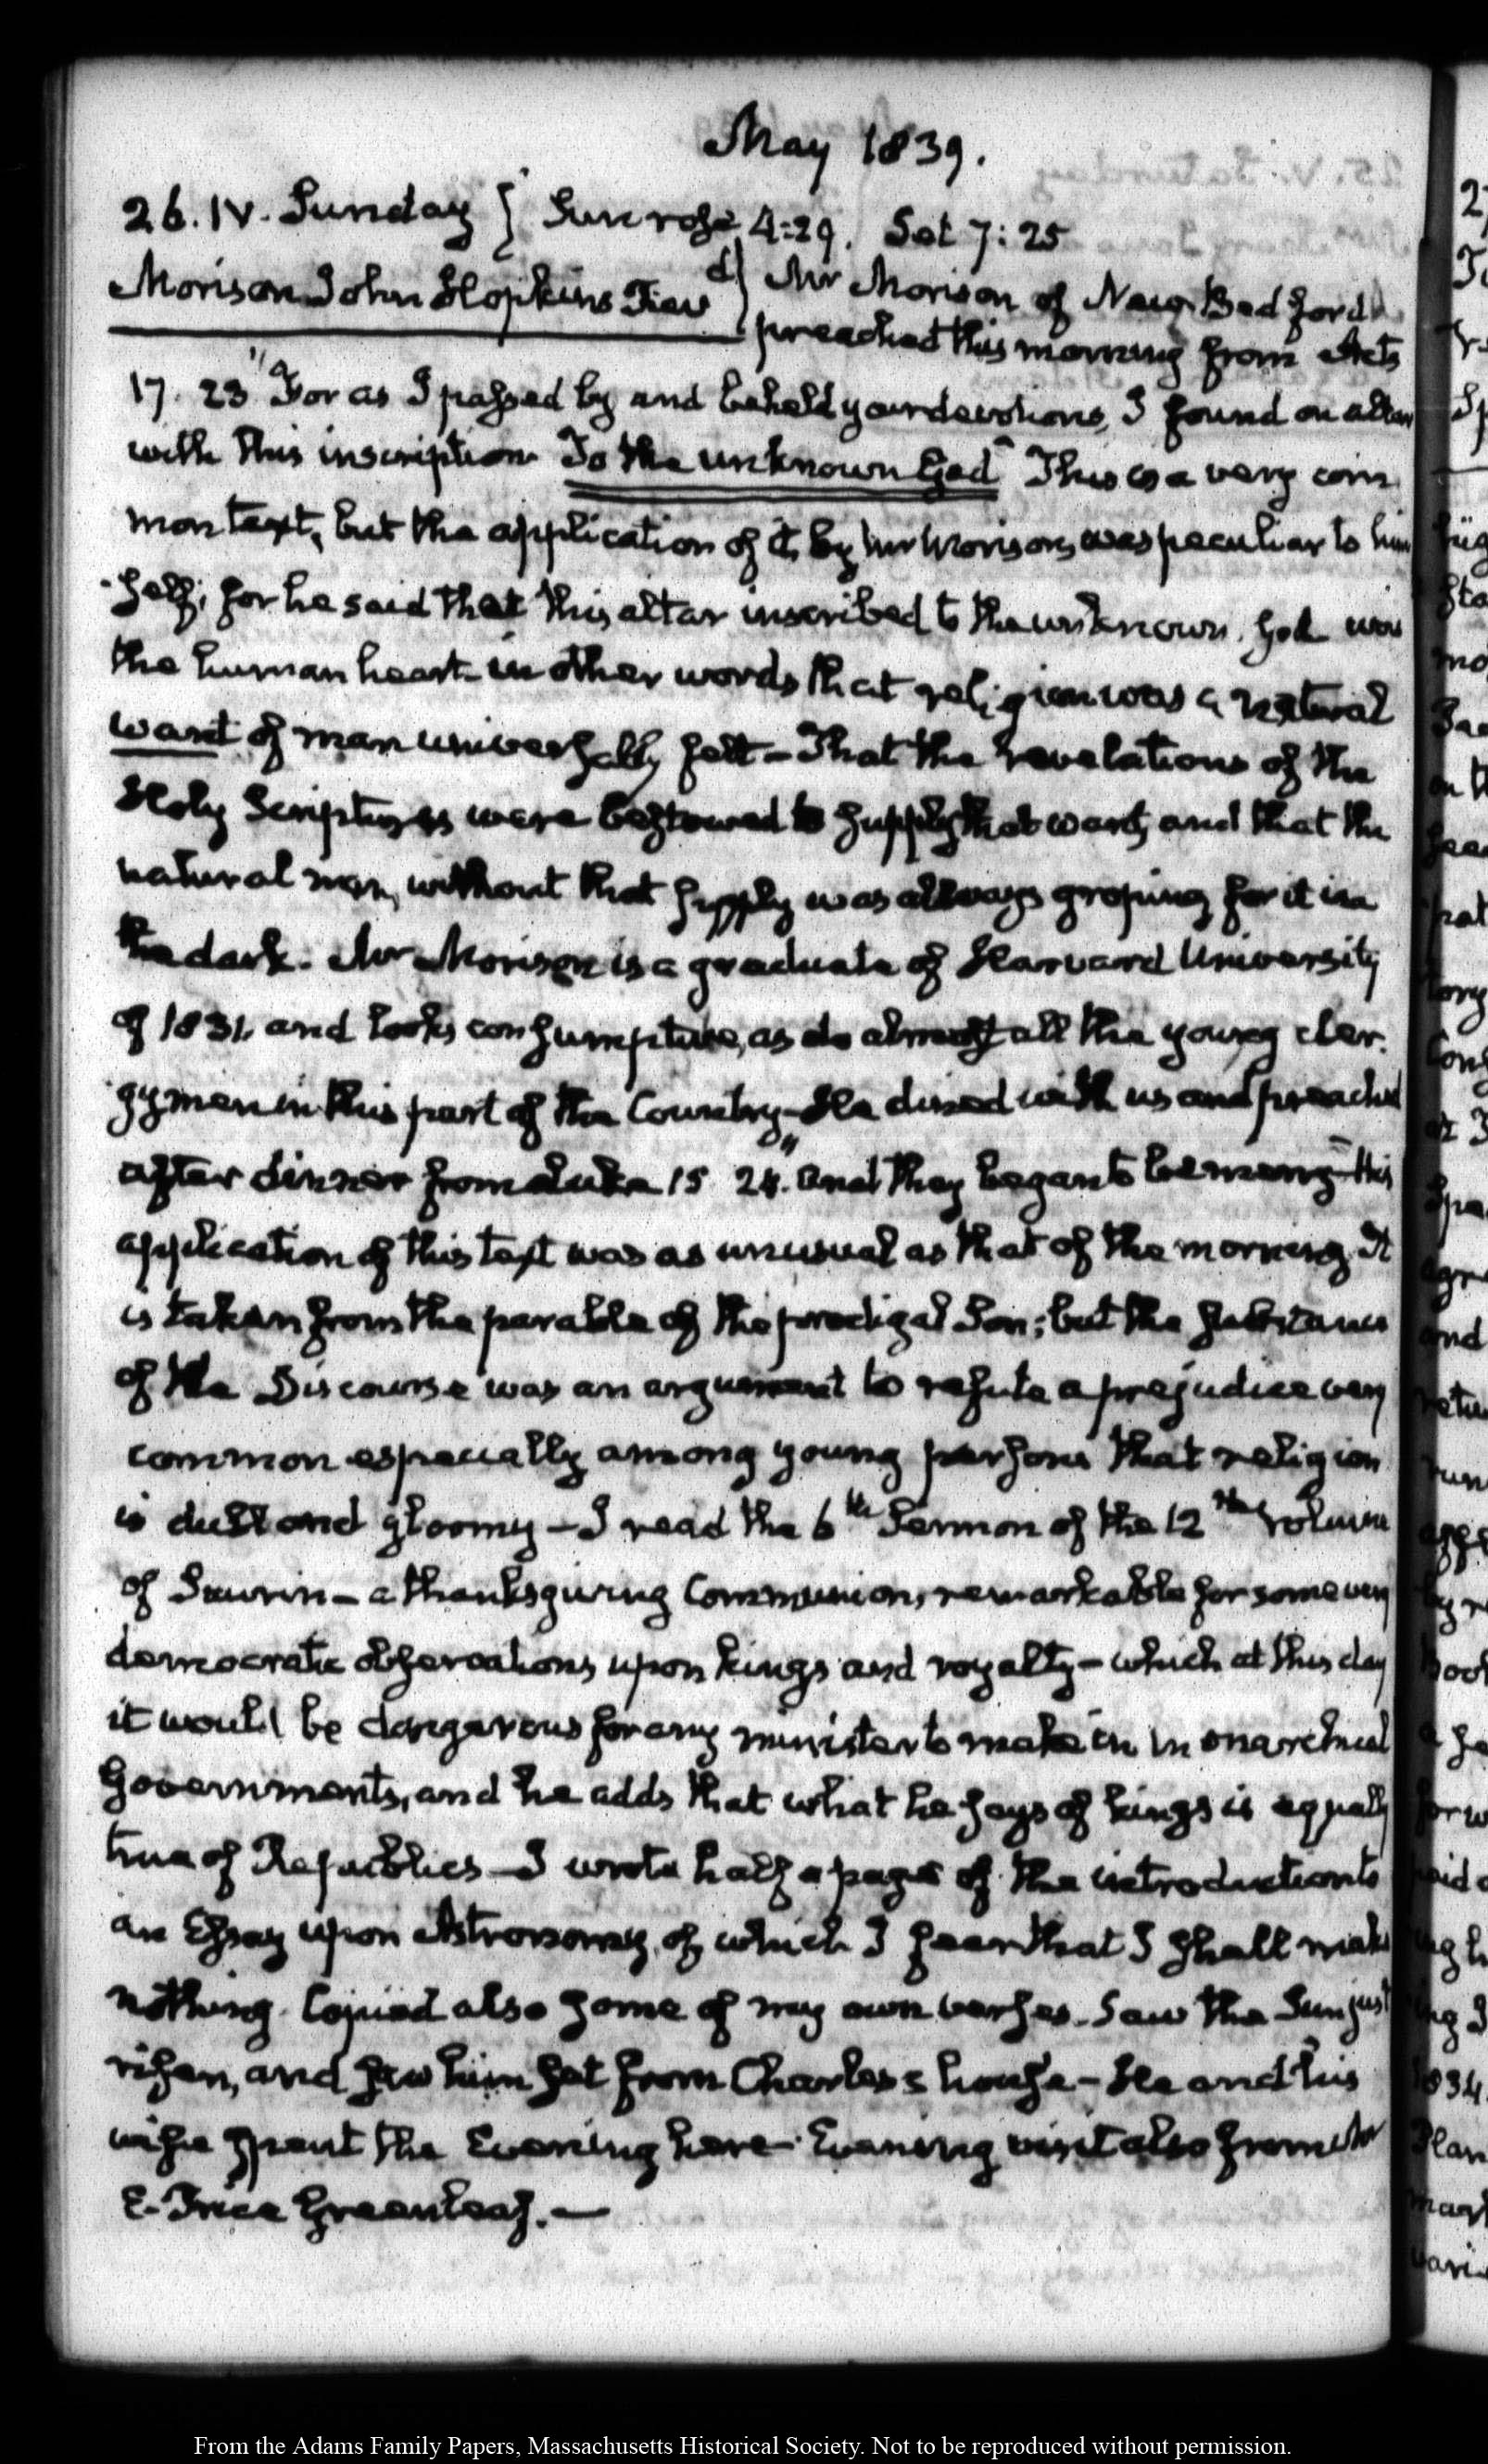 May 1839.
26. IV. Sunday } Sun rose 4:29. Set 7:25
Morison John Hopkins } Mr Morison of New Bedford
preached this morning from Acts
17. 23 "For as I passed by and beheld your devotions, I found an altar
with this inscription To the unknown God" This is a very com
mon text, but the application of it, by Mr Morison, was peculiar to him
self; for he said that this altar inscribed to the unknown God was
the human heart in other words that religion was a natural
want of man universally felt - That the revelations of the
Holy Scriptures were bestowed to supply that want, and that the
natural man, without that supply was always groping for it in
the dark. Mr Morison is a graduate of Harvard University
of 1831, and looks consumptive, as do almost all the young cler-
gymen in this part of the Country - He dined with us and preached
after dinner from Luke 15 24. "And they began to be merry" His
application of this text was as unusual as that of the morning. It
is taken from the parable of the prodigal Son; but the substance
of the Discourse was an argument to refute a prejudice very
common especially among young persons that religion
is dull and gloomy - I read the 6th Sermon of the 12th volume
of Saurin - a thanksgiving Communion, remarkable for some very
democratic observations upon kings and royalty - which at this day
it would be dangerous for any minister to make in monarchical
Governments, and he adds that what he says of kings is equally
true of Republics - I wrote half a page of the introduction to
an Essay upon Astronomy, of which I fear that I shall make
nothing. Copied also some of my own verses. Saw the Sun just
risen, and saw him set from Charles's house - He and his
wife spent the Evening here - Evening visit also from Mr
E. Price Greenleaf. —
From the Adams Family Papers, Massachusetts Historical Society. Not to be reproduced without permission.